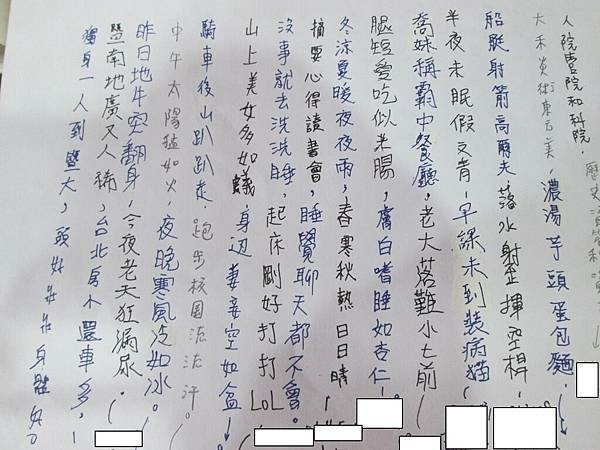 人院管院和科院.
大禾炎術東方美,濃湯芋頭蛋包麵.
船艇射箭高爾夫 落水射歪揮空桿
半夜未眠假文青,早課未到裝病貓
喬妹稱霸中餐廳,老大落難小七前
腿短愛吃似米腸,膚白嗜睡如杏仁
冬涼夏暖夜夜雨,春寒秋熱日日晴
摘要心得讀書會,睡覺聊天都不會。
沒事就去洗洗睡,起床剛好打打LOL
山上美女多如蟻,身邊妻妾空如盒
騎車後山趴趴走 跑步校園流流汗
中午太陽猛如火,夜晚寒風冷如冰。
昨日地牛突翻身,今夜老天狂漏尿.
暨南地廣又人稀,台北房小還車多,
獨身一人到暨大,頭好壯壯身體好